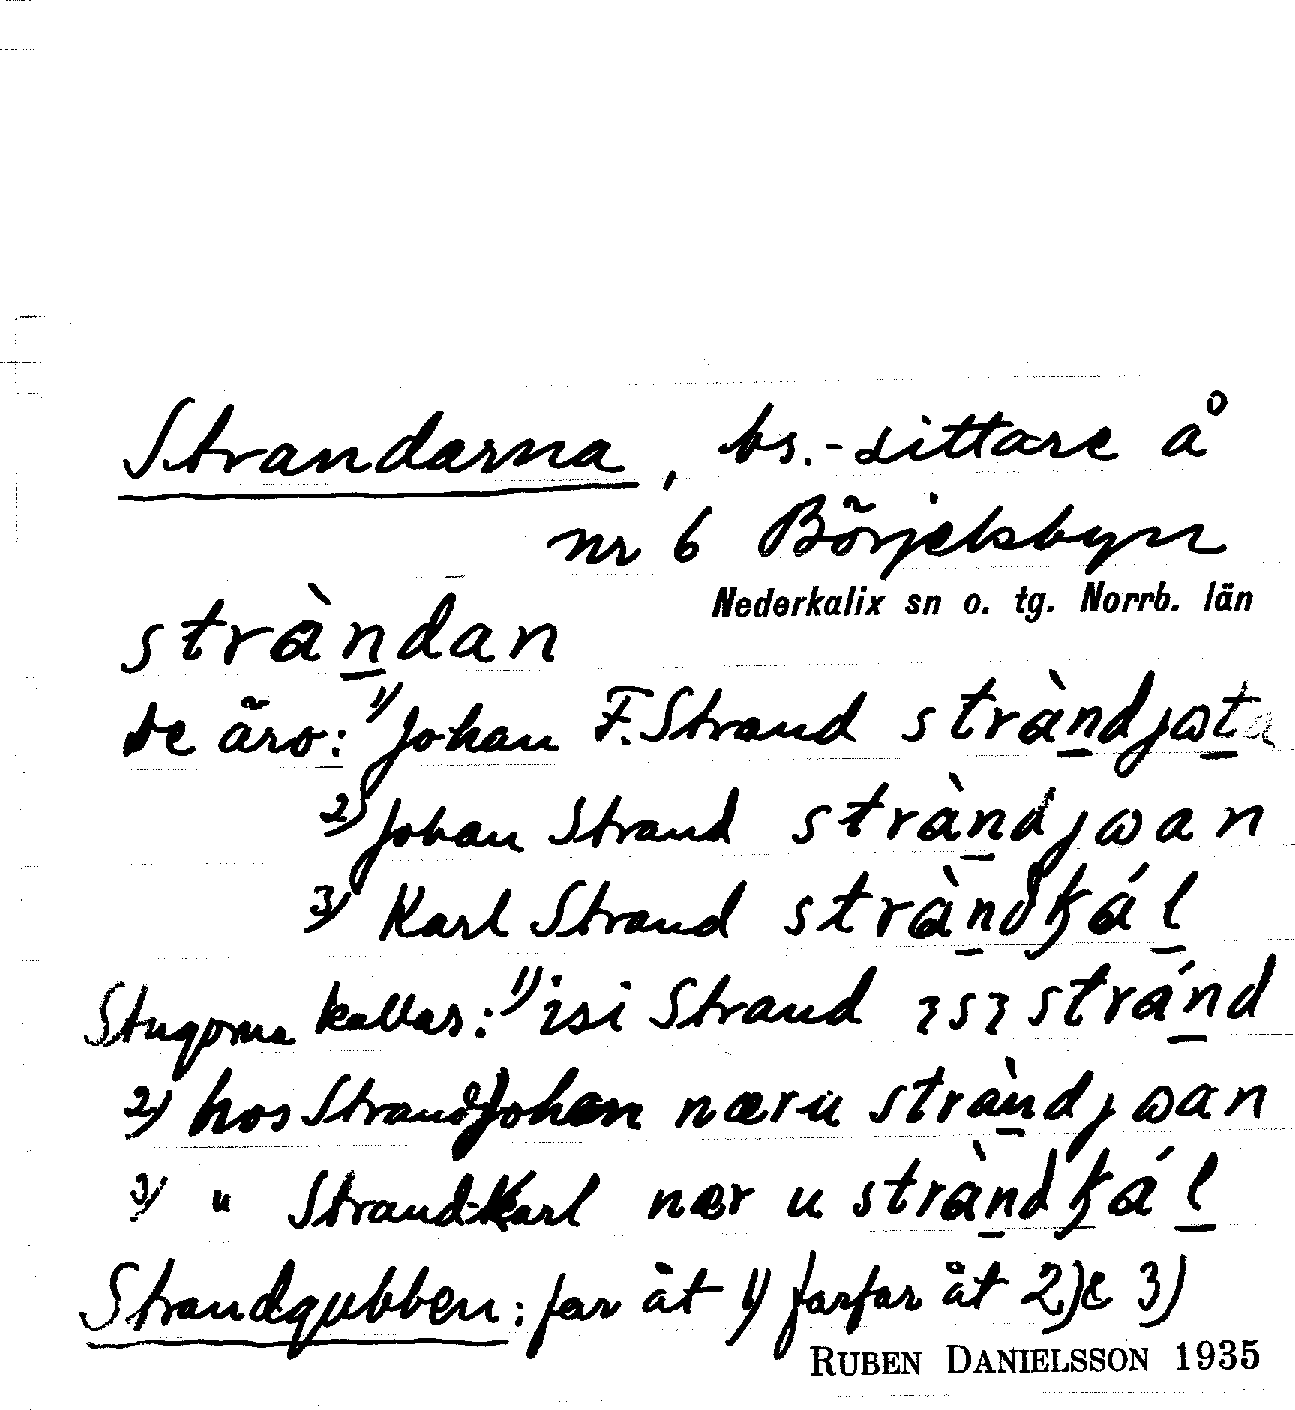 Strandarna, bs.-sittare å
nr 6 Börjelsbyn
Nederkalix sn o. tg. Norrb. län
stràn̲dan
De äro: 1) Johan F. Strand stràn̲djɷt̲a
2) Johan Strand stràn̲djɷan
3) Karl Strand stràn̲dk̡ál̲
Stugorna kallas: 1) isi Strand ɿsɿ strán̲d
2) hos StrandJohan næru stràn̲djɷan
3) " Strand-Karl nær u stràn̲dk̡ál̲
Strandgubben: far åt 1) farfar åt 2) & 3)
RUBEN DANIELSSON 1935